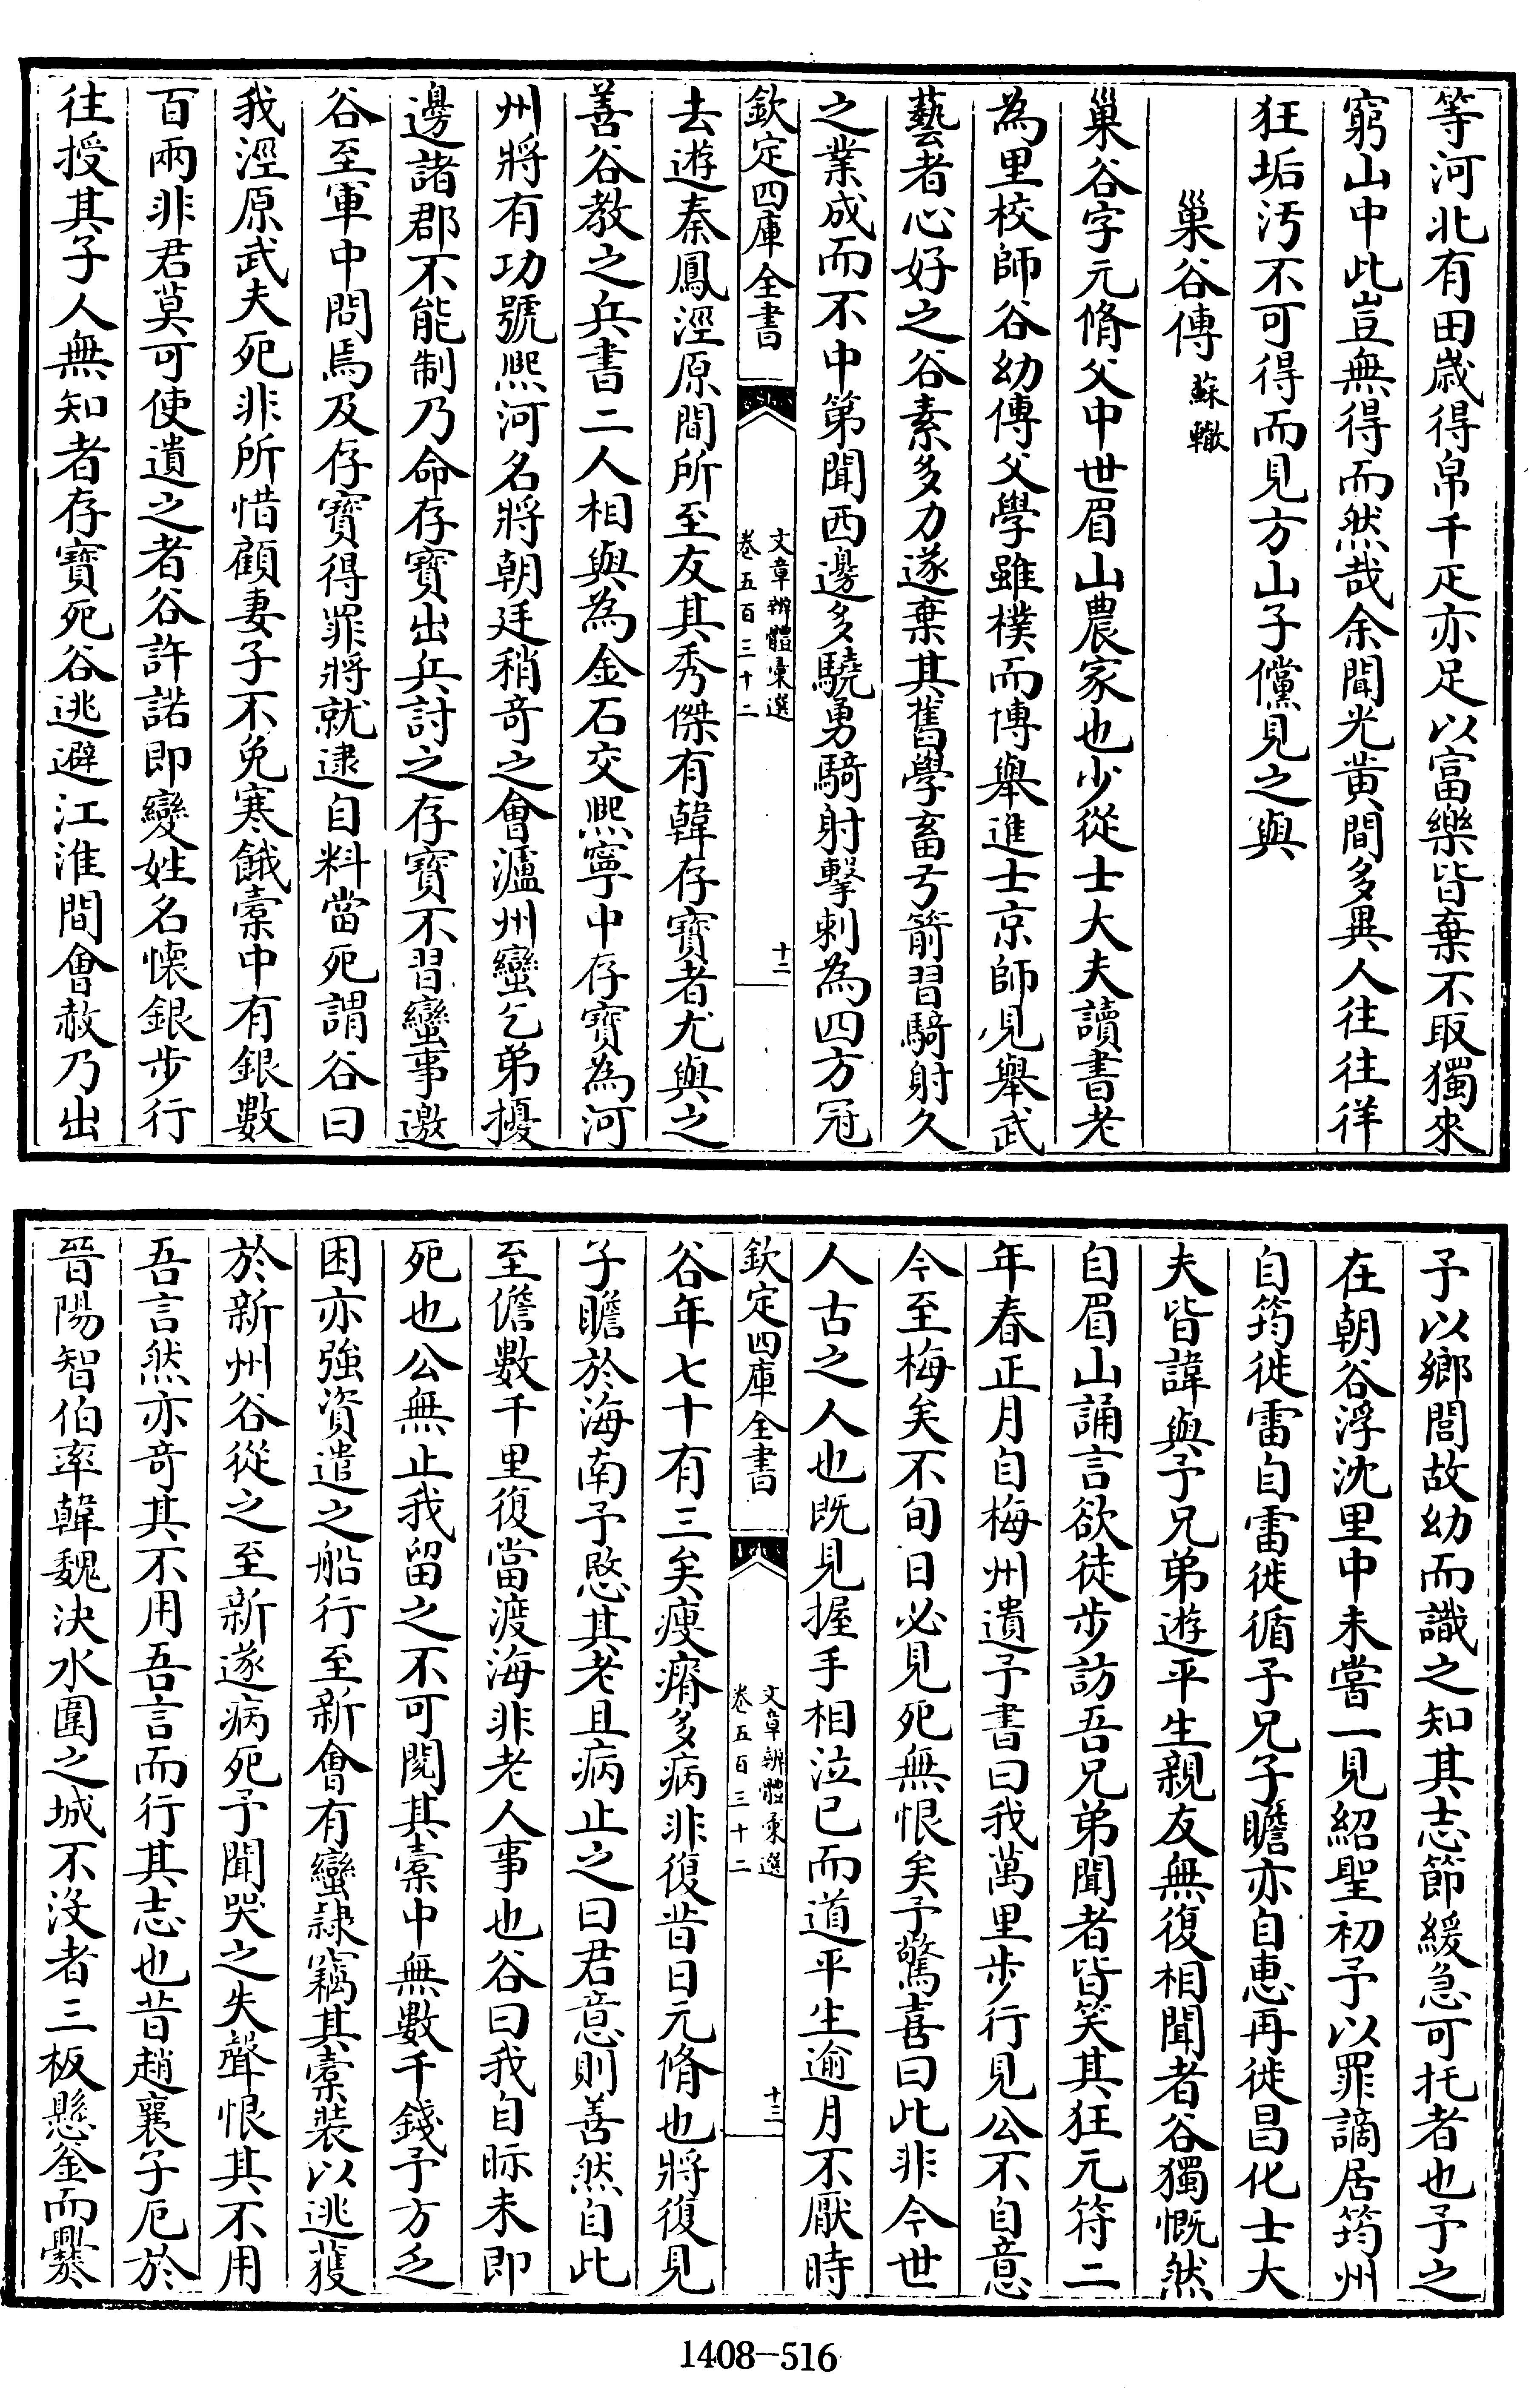 等河北有田歲得帛千疋亦足以富樂皆棄不取獨來
窮山中此豈無得而然哉余聞光黄間多異人往往徉
狂垢汚不可得而見方山子儻見之與
巢谷傳 蘇轍
巢谷字元脩父中世眉山農家也少從士大夫讀書老
為里校師谷幼傳父學雖樸而博舉進士京師見舉武
藝者心好之谷素多力遂棄其舊學畜弓箭習騎射久
之業成而不中第聞西邊多驍勇騎射擊刺為四方冠
欽定四庫全書
文章辨體彙選
卷五百三十二
十二
去遊秦鳳涇原間所至友其秀傑有韓存寳者尤與之
善谷教之兵書二人相與為金石交熙寧中存寳為河
州將有功號熙河名將朝廷稍竒之會瀘州蠻乞弟擾
邊諸郡不能制乃命存寳出兵討之存寳不習蠻事邀
谷至軍中問焉及存寳得罪將就逮自料當死謂谷曰
我涇原武夫死非所惜顧妻子不免寒餓槖中有銀數
百兩非君莫可使遺之者谷許諾即變姓名懷銀步行
往授其子人無知者存寳死谷逃避江淮間會赦乃出
予以鄉閭故幼而識之知其志節緩急可托者也予之
在朝谷浮沈里中未嘗一見紹聖初予以罪謫居筠州
自筠徙雷自雷徙循予兄子瞻亦自惠再徙昌化士大
夫皆諱與予兄弟遊平生親友無復相聞者谷獨慨然
自眉山誦言欲徒步訪吾兄弟聞者皆笑其狂元符二
年春正月自梅州遺予書曰我萬里步行見公不自意
今至梅矣不旬日必見死無恨矣予驚喜曰此非今世
人古之人也既見握手相泣已而道平生逾月不厭時
欽定四庫全書
文章辨體彙選
卷五百三十二
十三
谷年七十有三矣瘦瘠多病非復昔日元脩也將復見
子瞻於海南予愍其老且病止之曰君意則善然自此
至儋數千里復當渡海非老人事也谷曰我自眎未即
死也公無止我留之不可閱其槖中無數千錢予方乏
困亦強資遣之船行至新會有蠻隷竊其槖裝以逃獲
於新州谷從之至新遂病死予聞哭之失聲恨其不用
吾言然亦竒其不用吾言而行其志也昔趙襄子厄於
晉陽智伯率韓魏決水圍之城不没者三板懸釜而爨
1408-516